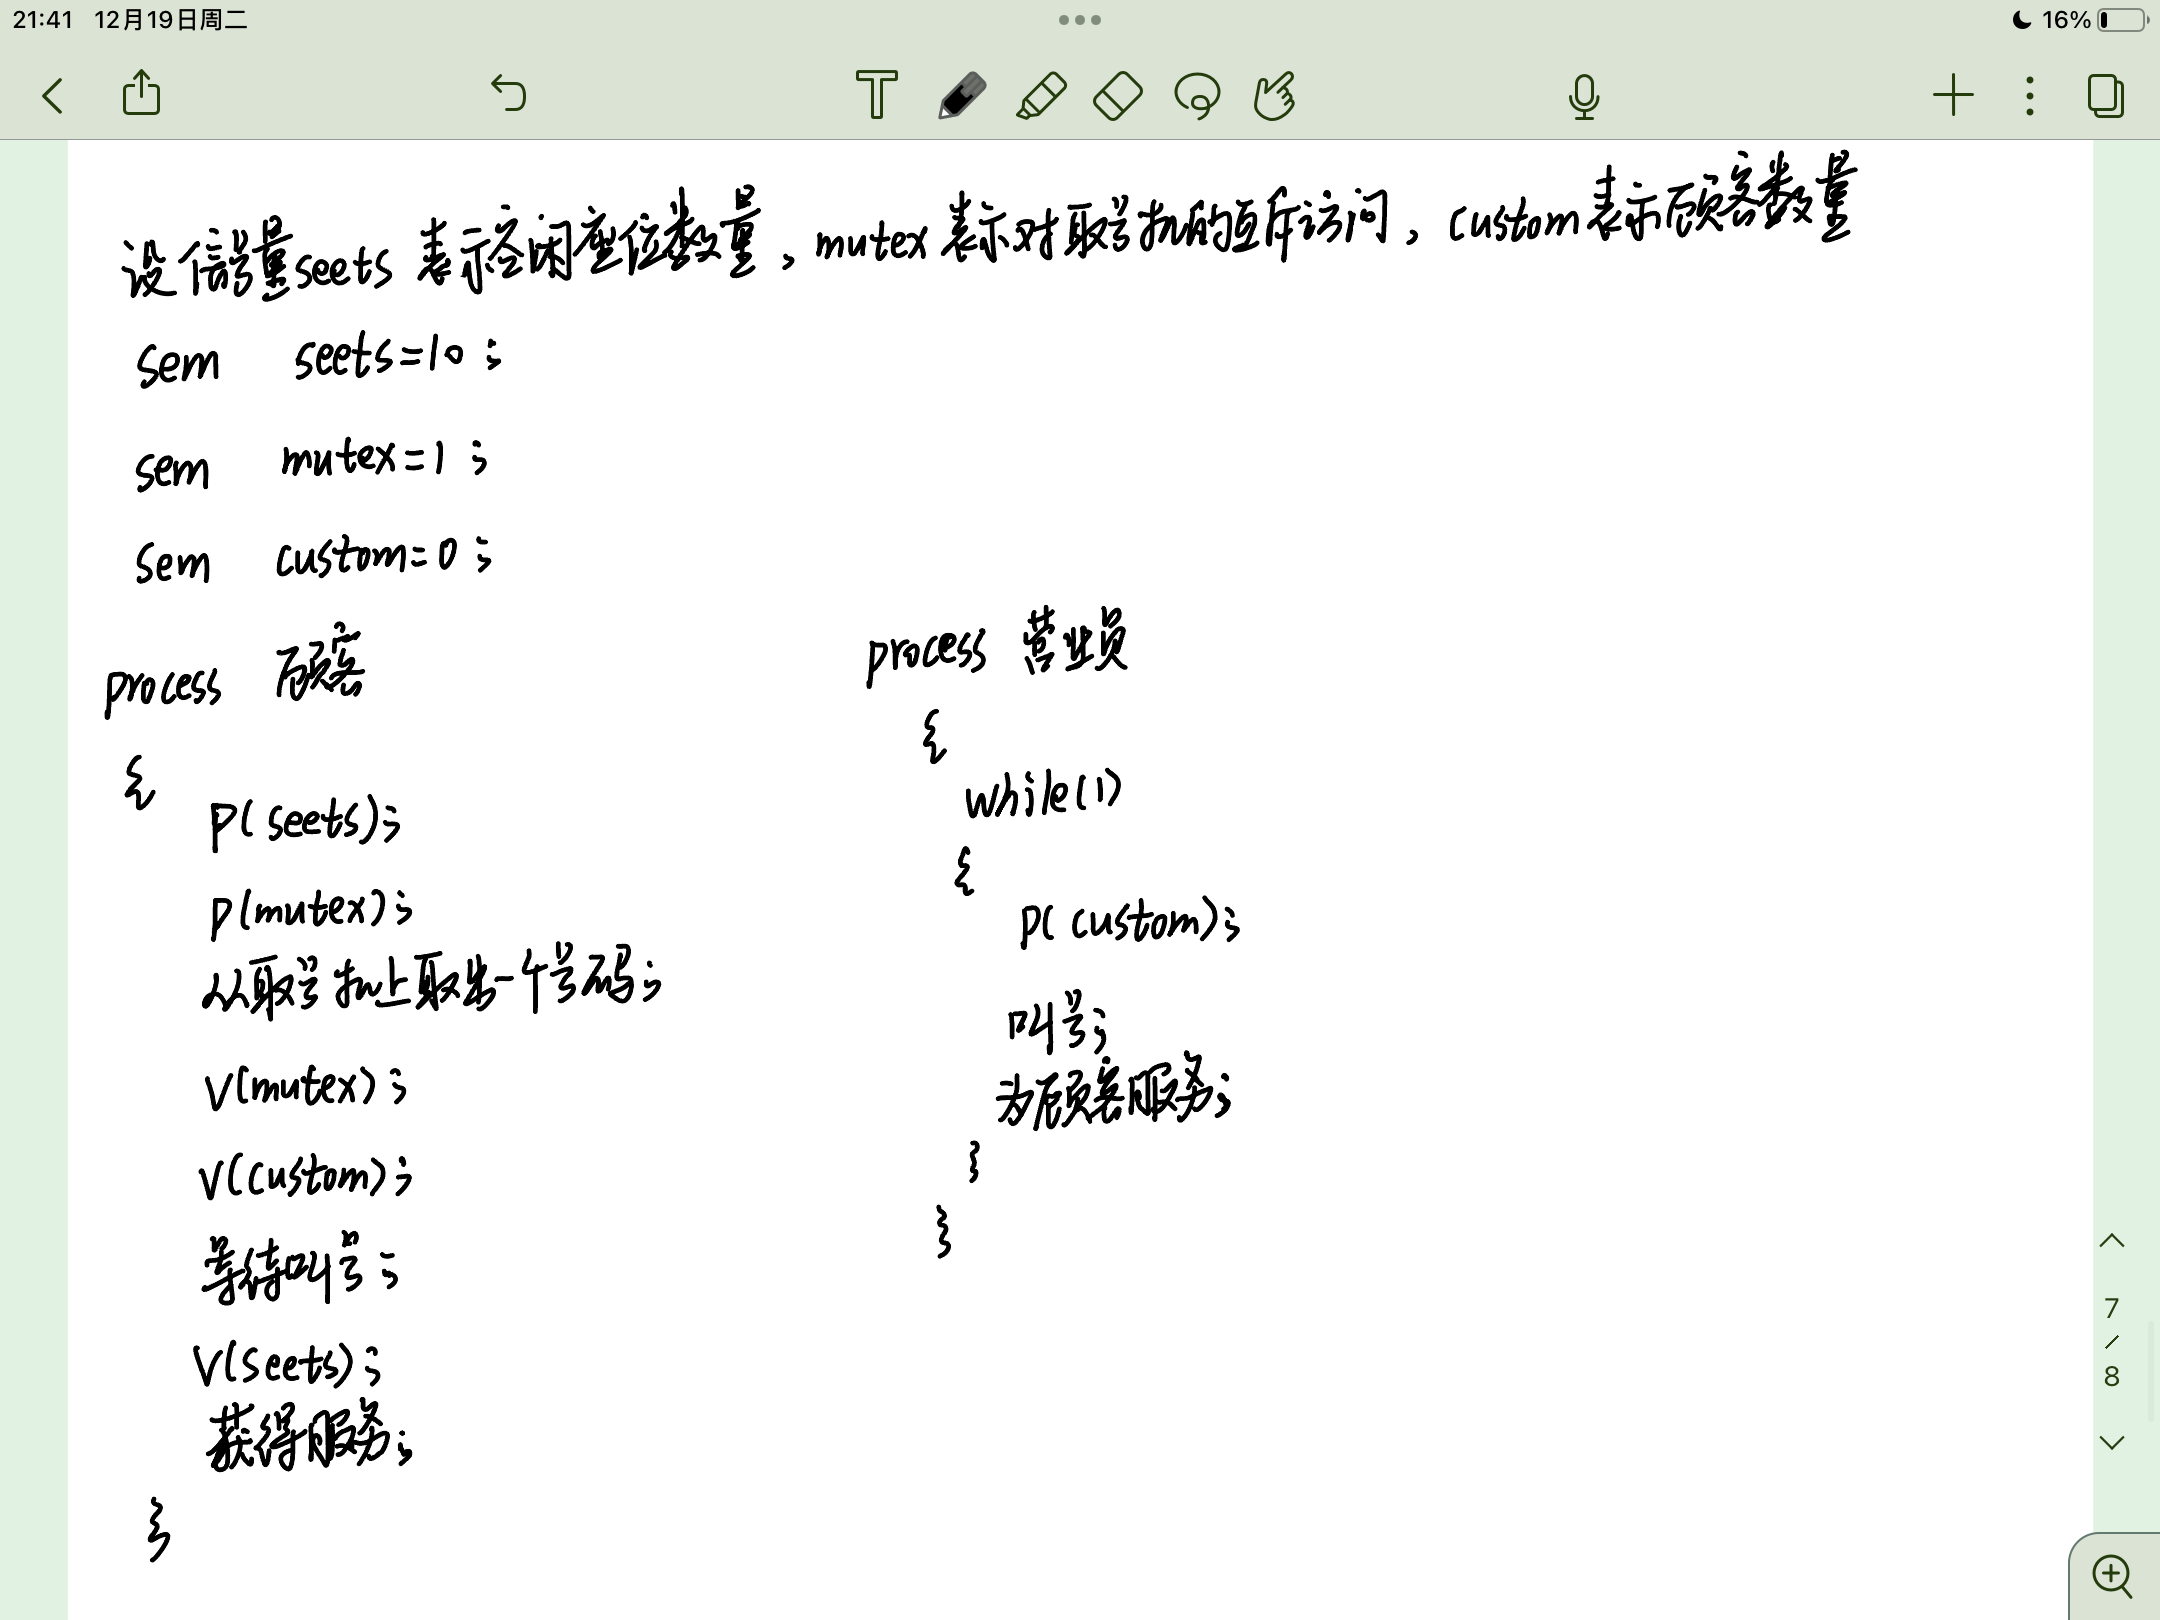 21:41 12月19日周二
16%
设信号量seets 表示空闲座位数量,mutex 表示对取号机的互斥访问,custom表示顾客数量
sem seets=10;
sem mutex=1;
sem custom=0;
process 顾客
{
P(seets);
P(mutex);
从取号机上取出一个号码;
V(mutex);
V(custom);
等待叫号;
V(seets);
获得服务;
}
process 营业员
{
while(1)
{
P(custom);
叫号;
为顾客服务;
}
}
7
/
8